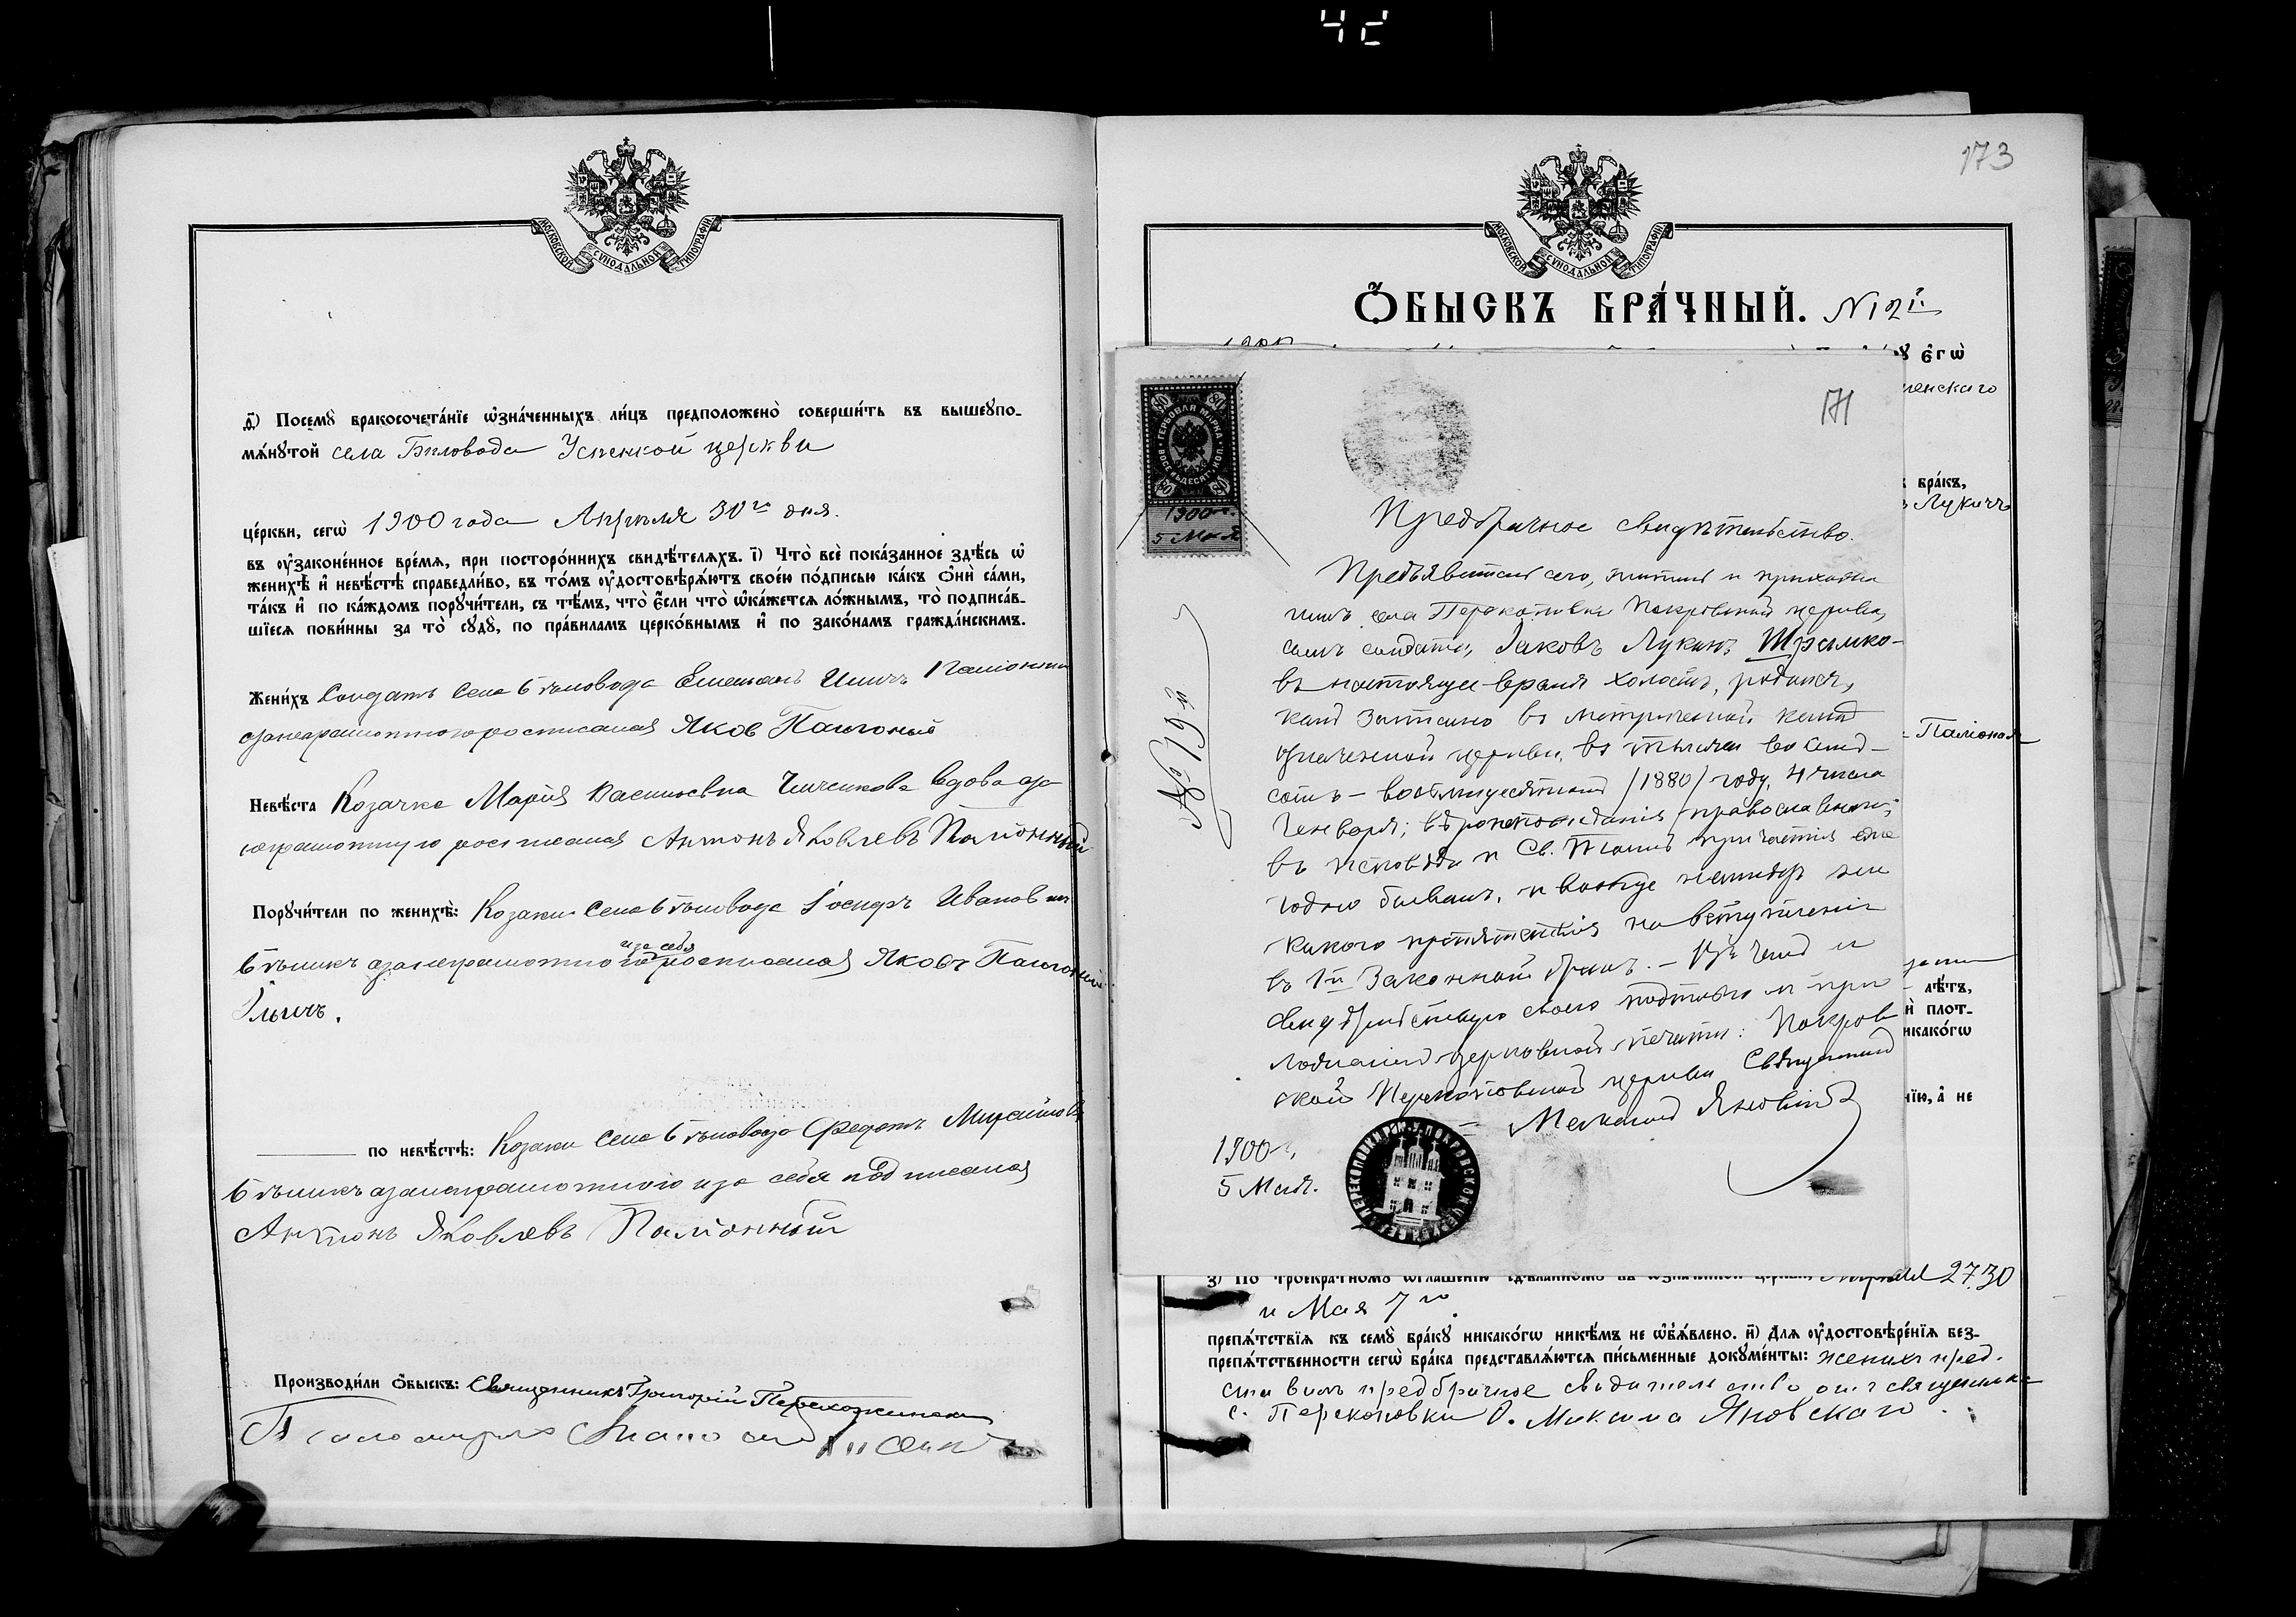 42
МОСКОВСКОЙ СУНОДАЛЬНОЙ ТИПОГРАФІИ
Ѳ҃) Посемꙋ̀ бракосочета́нїе ѡ҆зна́ченныхъ ли́цъ предположено̀ соверши́ть въ вышеꙋпо-
мѧ́нꙋтой села Біловода Успенской церкви
це́ркви, сегѡ̀ 1900 года Апрѣля 30го дня.
въ ᲂу҆законе́нное вре́мя, при посторо́ннихъ свидѣ́теляхъ. і҃) Что̀ всѐ пока́занное здѣ́сь ѡ҆
женихѣ̀ и҆ невѣ́стѣ справедли́во, въ то́мъ ᲂу҆достовѣрѧ́ютъ свое́ю по́дписью ка́къ ѻ҆нѝ са́ми,
та́къ и҆ по ка́ждомъ порꙋчи́тели, съ тѣ́мъ, что̀ є҆́сли что̀ ѡ҆ка́жется ло́жнымъ, то̀ подписа́в-
шїеся пови́нны за то̀ сꙋдꙋ̀, по пра́виламъ церко́внымъ и҆ по зако́намъ гражда́нскимъ.
Жени́хъ Солдатъ села Бѣловода Емельянъ
Яков Пальоный
Невѣ́ста Козачка Марія Васильевна вдова
Антонъ Яковлевъ Пальонный
Порꙋчи́тели по женихѣ̀: Козакъ села Бѣловода Іосифъ Иванов
Бѣликъ а за неграмотного и за себя росписался Яковъ Пальоный
Ильичъ.
по невѣ́стѣ: Козакъ села Бѣловода Федотъ
Бѣликъ а за неграмотного и за себя подписался
Антонъ Яковлевъ Пальонный
Производи́ли ѻ҆́быскъ: Священникъ Григорій
Псаломщикъ
173
МОСКОВСКОЙ СУНОДАЛЬНОЙ ТИПОГРАФІИ
Ѻ҆́БЫСКЪ БРА́ЧНЫЙ. № 21й
є҆гѡ̀
бра́къ,
Лукичъ
Пальоная
лѣ́тъ,
плот-
никако́гѡ
а҆ не
171
ГЕРБОВАЯ МАРКА
ВОСЕМЬДЕСЯТ КОП.
80
1900 г.
5 Мая
№ 199й
Предбрачное свидѣтельство.
Предъявитель сего, житель и прихожа
нинъ села Перекоповки Покровской церкви,
сынъ солдата, Іаковъ Лукинъ Шрамко-
въ настоящее время холостъ, родился,
какъ записано въ метрической книгѣ
означенной церкви, въ тысяча восемь-
сотъ-восьмидесятомъ /1880/ году, 4 числа
Генваря; вѣроисповѣданія православнаго;
въ исповѣди и Св. Таинъ причастія еже
годно бывалъ, и вообще не имѣетъ ни
какого препятствія на вступленіе
въ 1й законный бракъ. — Въ чемъ и
свидѣтельствую своею подписью и при
ложеніемъ церковной печати: Покров
ской Перекоповской церкви Священникъ
Максимъ Яновскій
1900 г.
5 Мая.
з҃) По троекра́тномꙋ ѡ҆глаше́нїю сдѣ́ланномꙋ въ ѡ҆зна́ченной це́ркви Апрѣля 27, 30
и Мая 7го
препѧ́тствїя къ семꙋ̀ бра́кꙋ никако́гѡ никѣ́мъ не ѡ҆б̾ѧ́влено. и҃) Для ᲂу҆достовѣре́нїя без-
препѧ́тственности сегѡ̀ бра́ка представлѧ́ются пи́сьменные докꙋме́нты: женихъ пред-
ставилъ предбрачное свидѣтельство отъ священника
с. Перекоповки О. Максима Яновскаго.